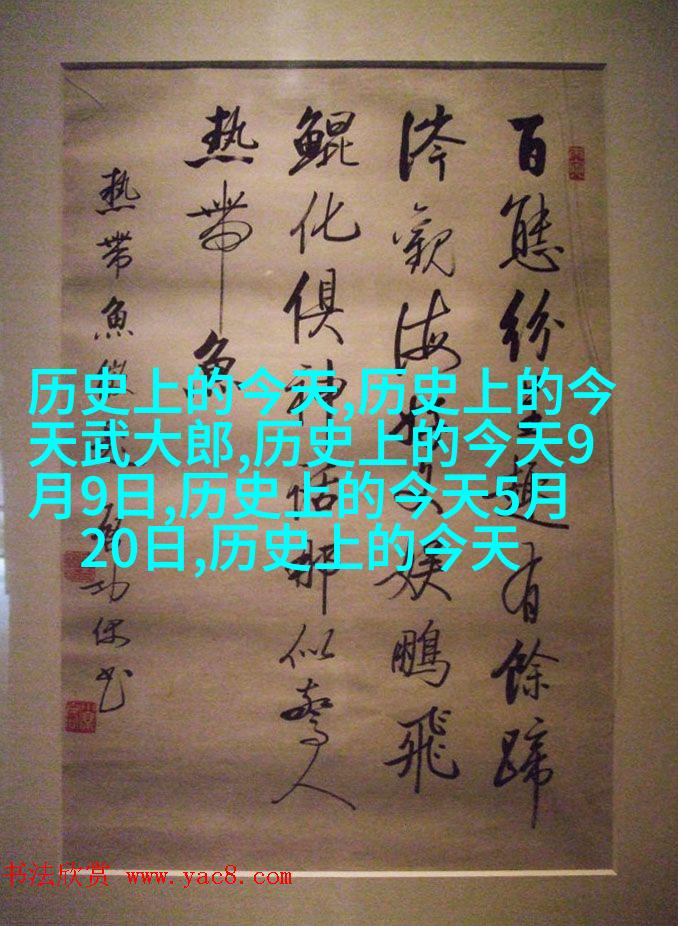 百態紛呈趣有餘蹄
涔觀海娛鵬飛
鯤化俱神話那似驚人
熱帶魚
熱帶魚功
历史上的今天,历史上的今
天武大郎,历史上的今天9
月9日,历史上的今天5月
20日,历史上的今天
书法欣赏 www.yac8.com